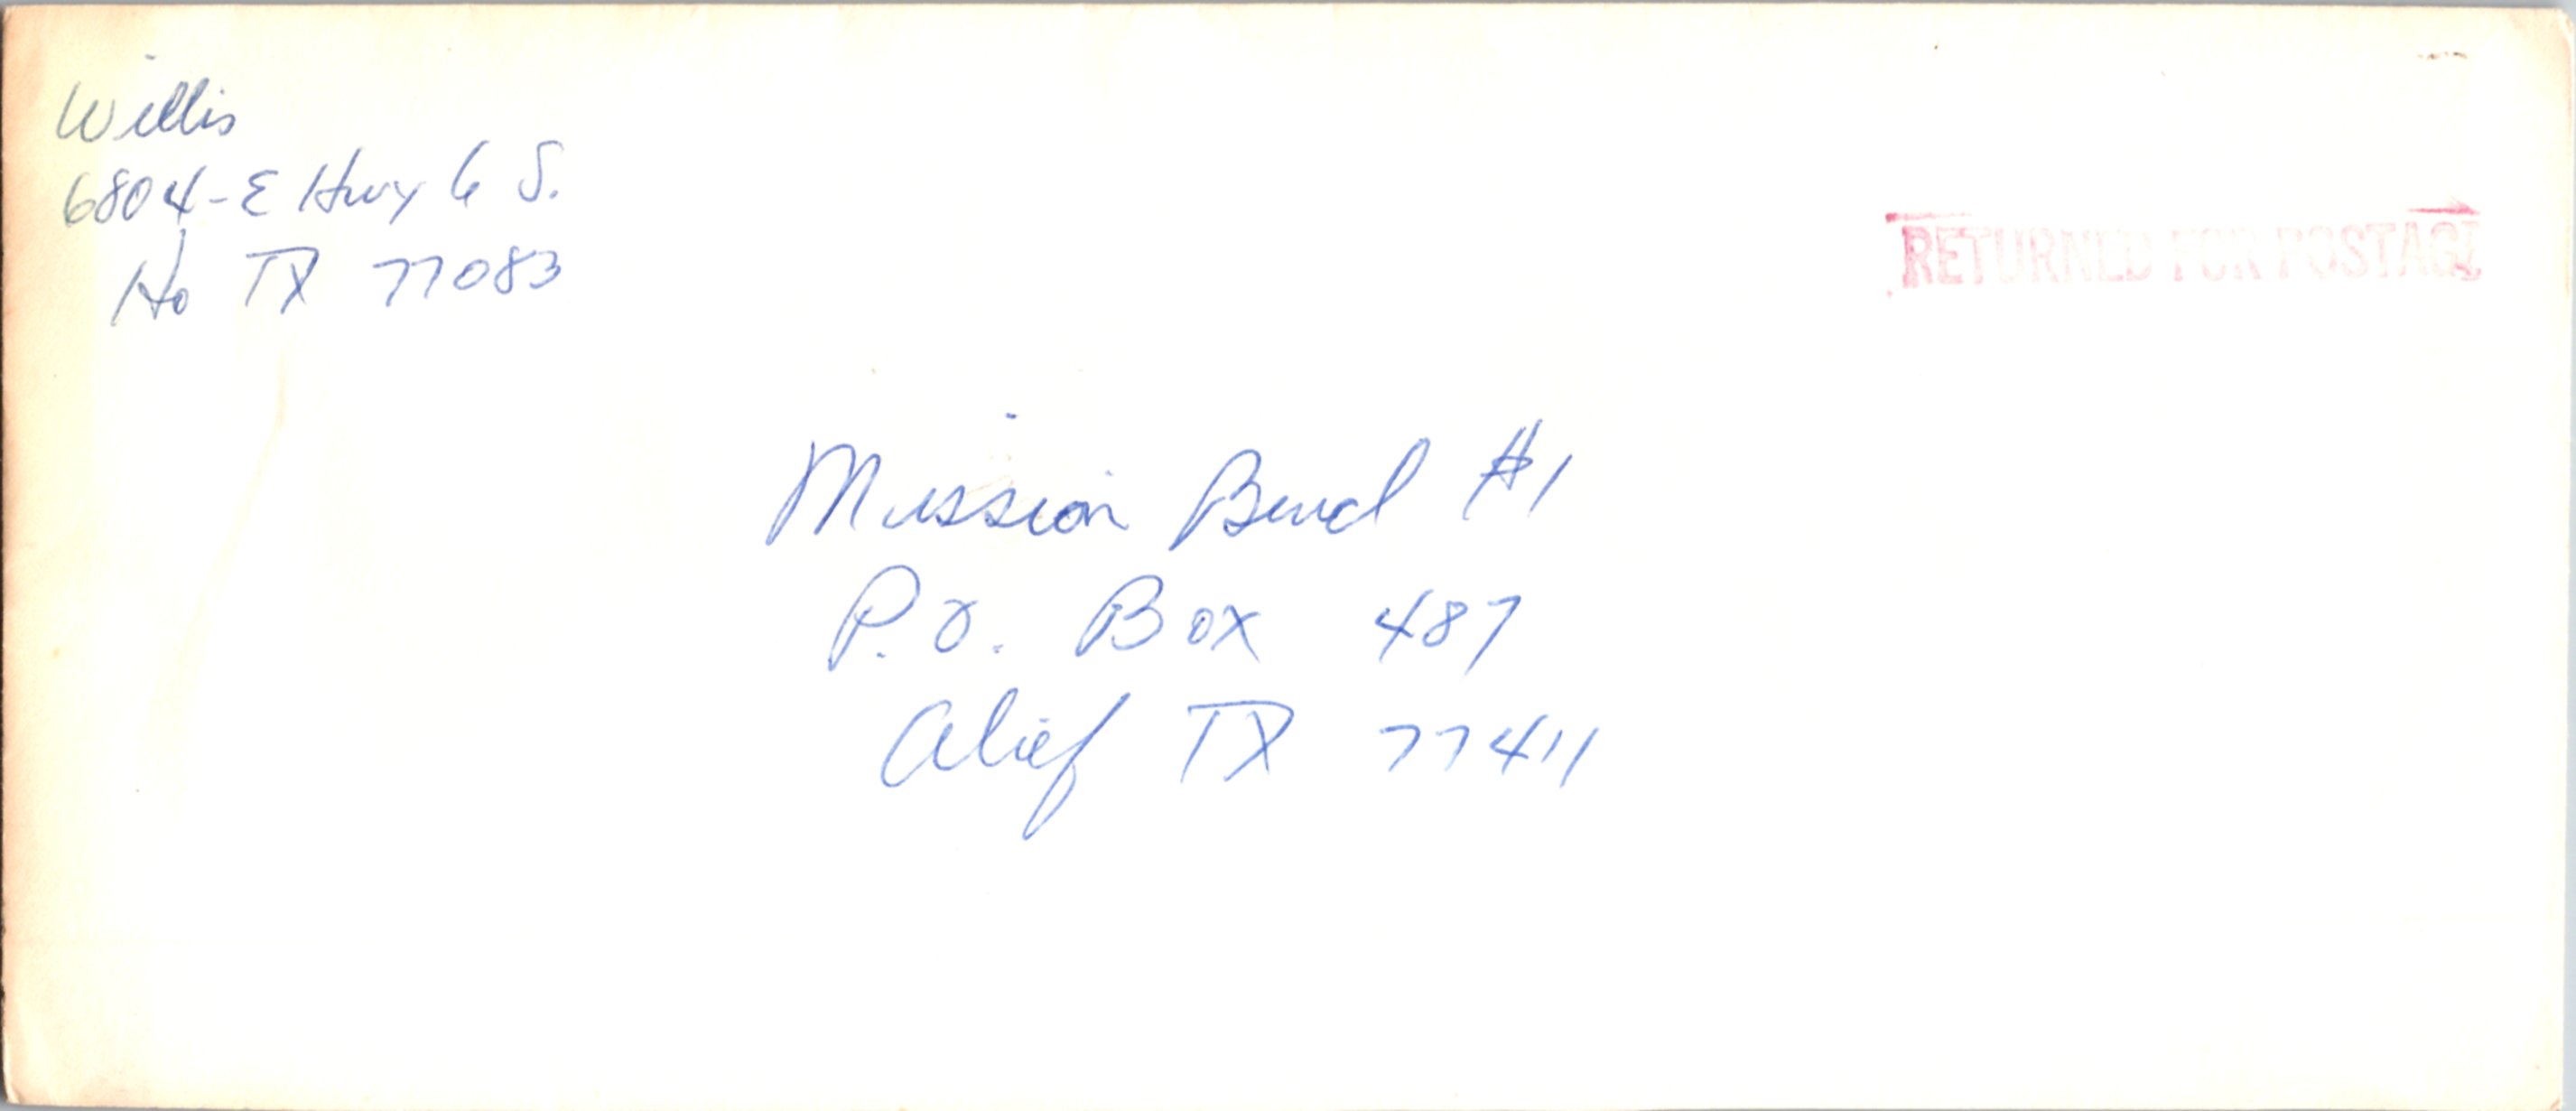 Willis
6804-E Hwy 6 S.
Ho TX 77083
RETURNED FOR POSTAGE
Mission Bend #1
P.O. Box 487
Alief TX 77411